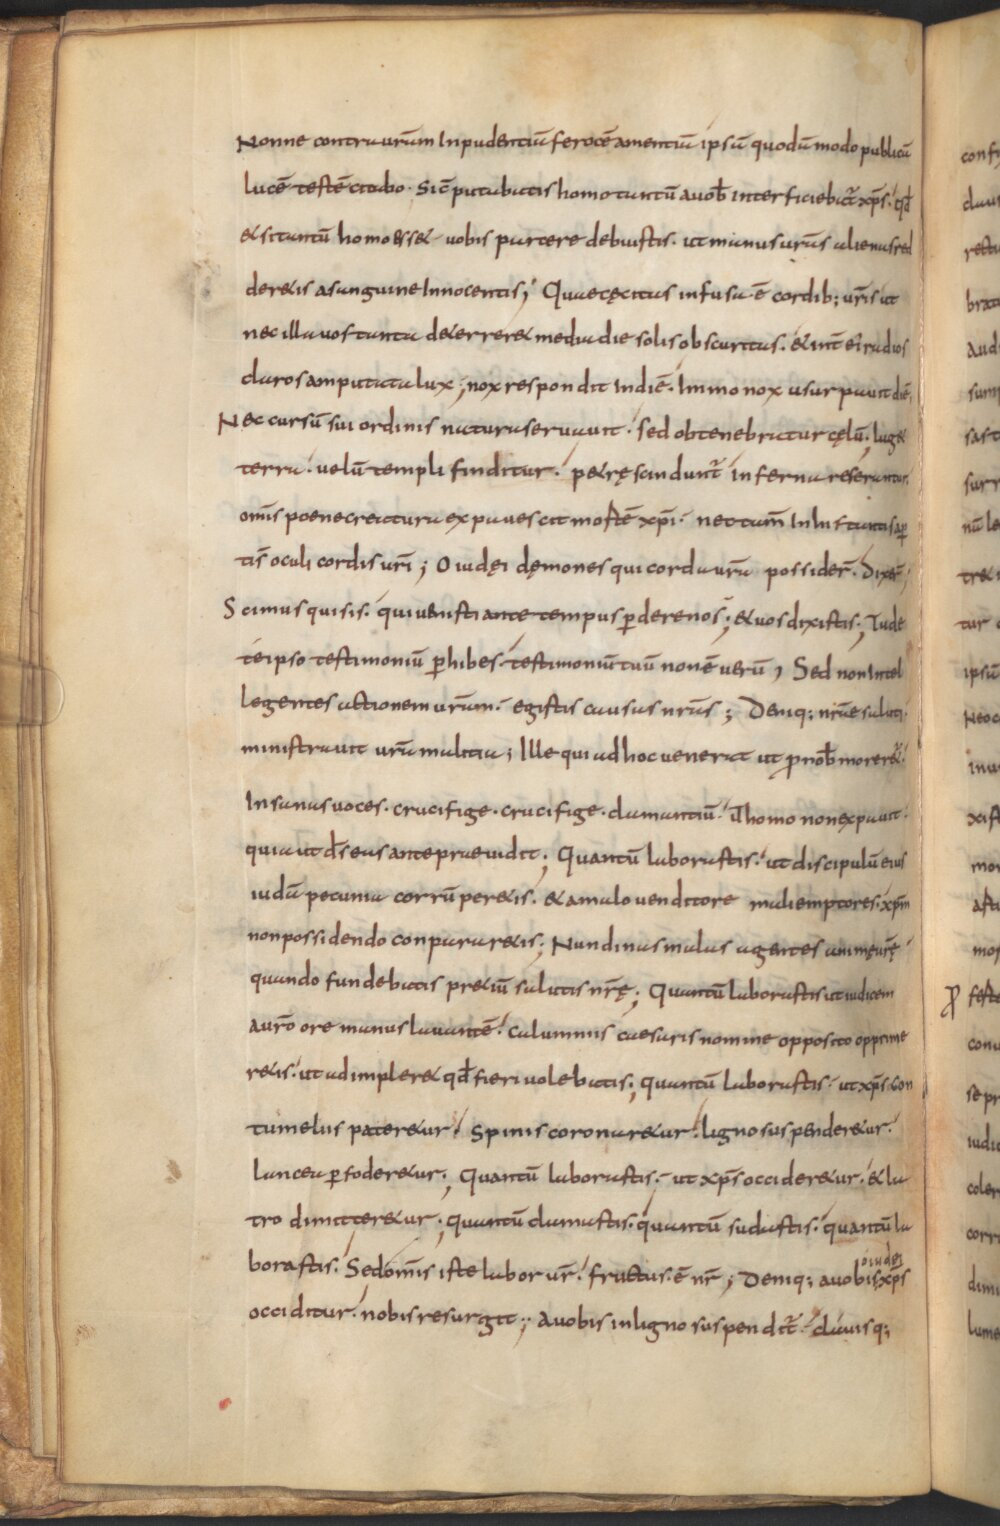 Nonne contra urām Inpudentiā ferocē amentiā ipsū quodā modo publicū
lucē testē citabo · Sic̄ putabatis homo tantū a uob̄ interficiebat̄ xp̄s · qd̄
& si tantū homo ess& uobis parcere debuistis · ut manus urās alienas red
der&is a sanguine Innocentis; Quae cęcitas infusa ē cordib; uris ut
nec illa uos tanta d&errer& media die solis obscuritas · & int̄ ei radios
claros amputata lux; nox respondit In diē · Immo nox usurpauit diē,
Nec cursū sui ordinis natura seruauit · sed obtenebratur cęlū; lug&
terra · uelū templi finditur · p&rę scindunt̄ inferna reserantur,
om̄s poene creatura expauescit mortē xp̄i · nec tam̄ In his tantis ap
tis̄ oculi cordis uri; O iudęi dęmones qui corda urā possider̄ · Dixer̄;
Scimus qui sis · qui uenisti ante tempus p̄dere nos; & uos dixistis; Tu de
te ipso testimoniū p̄hibes · testimoniū tuū non ē uerū; Sed non Intel
legentes actionem urām · egistis causas nrās; Deniq; nrāe saluti
ministrauit urā malitia; Ille qui ad hoc venerat ut p̄ nob̄ morer&̄ ·
Insanas uoces · crucifige · crucifige · clamantiū · Ut homo non expauit ·
quia ut d̄s eas ante praeuidit; Quantū laborastis · ut discipulū eius
iudā pecunia corrūper&is · & a malo uenditore mali emptores · xp̄m
non possidendo conparar&is; Nundinas malas agentes animę urę
quando fundebatis pr&iū salutis nrę; Quantū laborastis ut iudicem
auro ore manus lauantē · calumniis caesaris nomine opposito opprime
r&is · ut adimpler& qd̄ fieri uolebatis; quantū laborastis · ut xp̄s con
tumelias pater&ur · Spinis coronar&ur · ligno suspender&ur ·
lancea p̄foder&ur; Quantū laborastis · ut xp̄s occider&ur · & la
tro dimitter&ur; quantū clamastis · quantū sudastis · quantū la
borastis · Sed om̄is iste labor ur̄ · fructus · ē nr̄; Deniq; a uobis oiudei xp̄s
occiditur · nobis resurgit; A uobis in ligno suspendit̄ · clauisq;